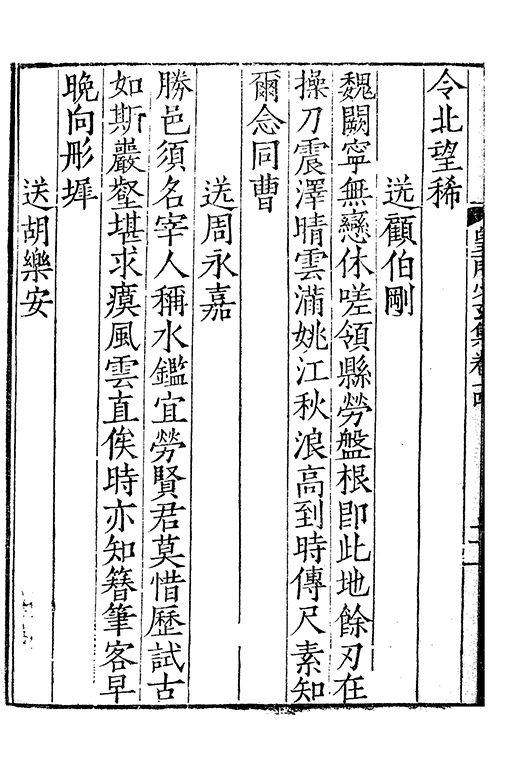 令北望稀
送顧伯剛
魏闕寧無戀休嗟領縣勞盤根即此地餘刃在
操刀震澤晴雲滿姚江秋浪高到時傳尺素知
爾念同曹
送周永嘉
勝邑須名宰人稱水鑑宜勞賢君莫惜歷試古
如斯嚴壑堪求瘼風雲直俟時亦知簪筆客早
晚向彤墀
送胡樂安